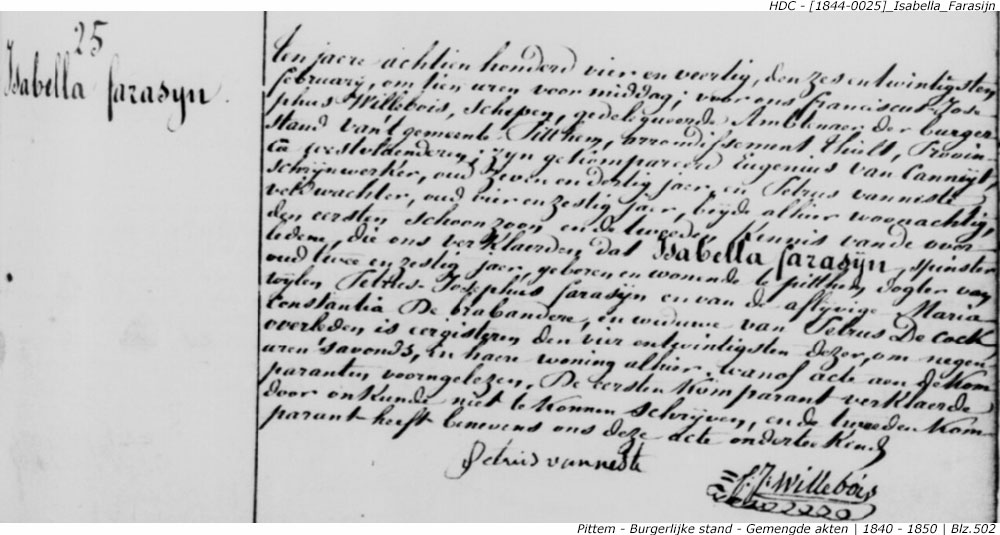 HDC - [1844-0025]_Isabella_Farasijn
25
Isabella farasyn.
ten jaere achtien honderd vier en veertig, den zes entwintigsten
february, om tien uren voormiddag; voor ons Franciscus Jose-
phus Willebois, schepen, gedelegueerde Ambtenaer der burger
stand van't gemeente Pitthem, arrondissement Thielt, Provin-
cie westvlaenderen; zyn gekompareerd Eugenius van Canneyt,
schrynwerker, oud zeven en dertig jaer, en Petrus vanneste
veldwachter, oud vier en zestig jaer, beyde alhier woonachtig,
den eersten schoonzoon en de tweeden Kennis vande over-
ledene, die ons verklaerden dat Isabella farasyn, spinster
oud twee en zestig jaer, geboren en wonende te pitthem, dogter van
wylen Petrus Josephus farasyn en van de aflyvige Maria
Constantia De brabandere, en weduwe van Petrus De Cock
overleden is eergisteren den vier entwintigsten dezer, om negen
uren s'avonds, in haere woning alhier. wanof acte aen de Kom
paranten voorengelezen, De eersten Komparant verklaerde
door onkunde niet te konnen schryven, en de tweeden Kom-
parant heeft benevens ons deze acte onderteekend
Petrus vanneste
F. J. Willebois
Pittem - Burgerlijke stand - Gemengde akten | 1840 - 1850 | Blz.502